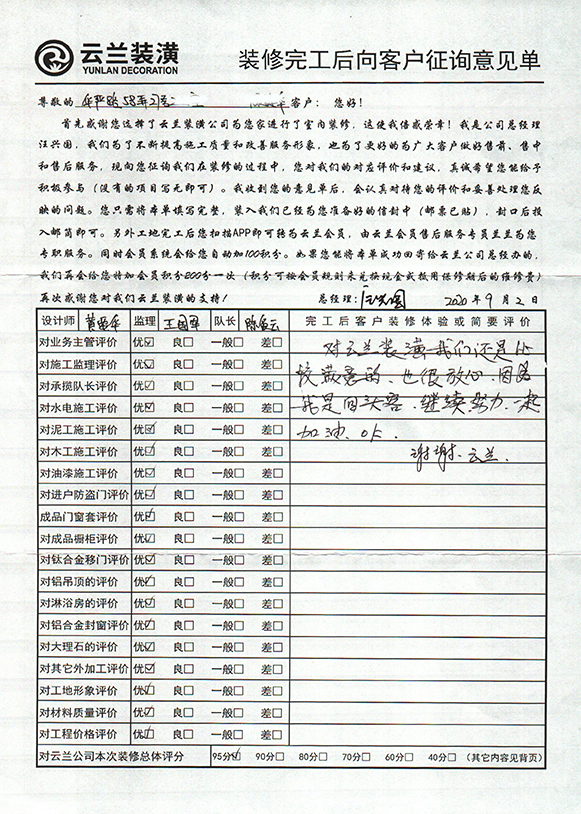 云兰装潢
YUNLAN DECORATION
装修完工后向客户征询意见单
尊敬的 58弄 客户：您好！
首先感谢您选择了云兰装潢公司为您家进行了室内装修，这使我倍感荣幸！我是公司总经理
汪兴国，我们为了不断提高施工质量和改善服务形象，也为了更好的为广大客户做好售前、售中
和售后服务，现向您征询我们在装修的过程中，您对我们的对应评价和建议，真诚希望您能给予
积极参与（没有的项目写无即可）。我收到您的意见单后，会认真对待您的评价和妥善处理您反
映的问题。您只需将本单填写完整，装入我们已经为您准备好的信封中（邮票已贴），封口后投
入邮筒即可。另外工地完工后您扫描APP即可转为云兰会员，由云兰会员售后服务专员兰兰为您
专职服务。同时会员系统会给您自动加100积分。如果您能将本单成功回寄给云兰公司总经办的，
我们再会给您特加会员积分200分一次（积分可按会员规则来兑换现金或报用保修期后的维修费）
再次感谢您对我们云兰装潢的支持！ 总经理：汪兴国 2020年9月2日
设计师 监理 王国军 队长 陈启云 完工后客户装修体验或简要评价
对业务主管评价 优☑ 良□ 一般□ 差□ 对云兰装潢我们还是比
对施工监理评价 优☑ 良□ 一般□ 差□ 较满意的、也很放心、因为
对承揽队长评价 优☑ 良□ 一般□ 差□
对水电施工评价 优☑ 良□ 一般□ 差□ 我是回头客、继续努力、一起
对泥工施工评价 优☑ 良□ 一般□ 差□ 加油、
对木工施工评价 优☑ 良□ 一般□ 差□ 谢谢、云兰.
对油漆施工评价 优☑ 良□ 一般□ 差□
对进户防盗门评价 优☑ 良□ 一般□ 差□
成品门窗套评价 优☑ 良□ 一般□ 差□
对成品橱柜评价 优☑ 良□ 一般□ 差□
对钛合金移门评价 优☑ 良□ 一般□ 差□
对铝吊顶的评价 优☑ 良□ 一般□ 差□
对淋浴房的评价 优☑ 良□ 一般□ 差□
对铝合金封窗评价 优☑ 良□ 一般□ 差□
对大理石的评价 优☑ 良□ 一般□ 差□
对其它外加工评价 优☑ 良□ 一般□ 差□
对工地形象评价 优☑ 良□ 一般□ 差□
对材料质量评价 优☑ 良□ 一般□ 差□
对工程价格评价 优☑ 良□ 一般□ 差□
对云兰公司本次装修总体评分 95分☑ 90分□ 80分□ 70分□ 60分□ 40分□ （其它内容见背页）